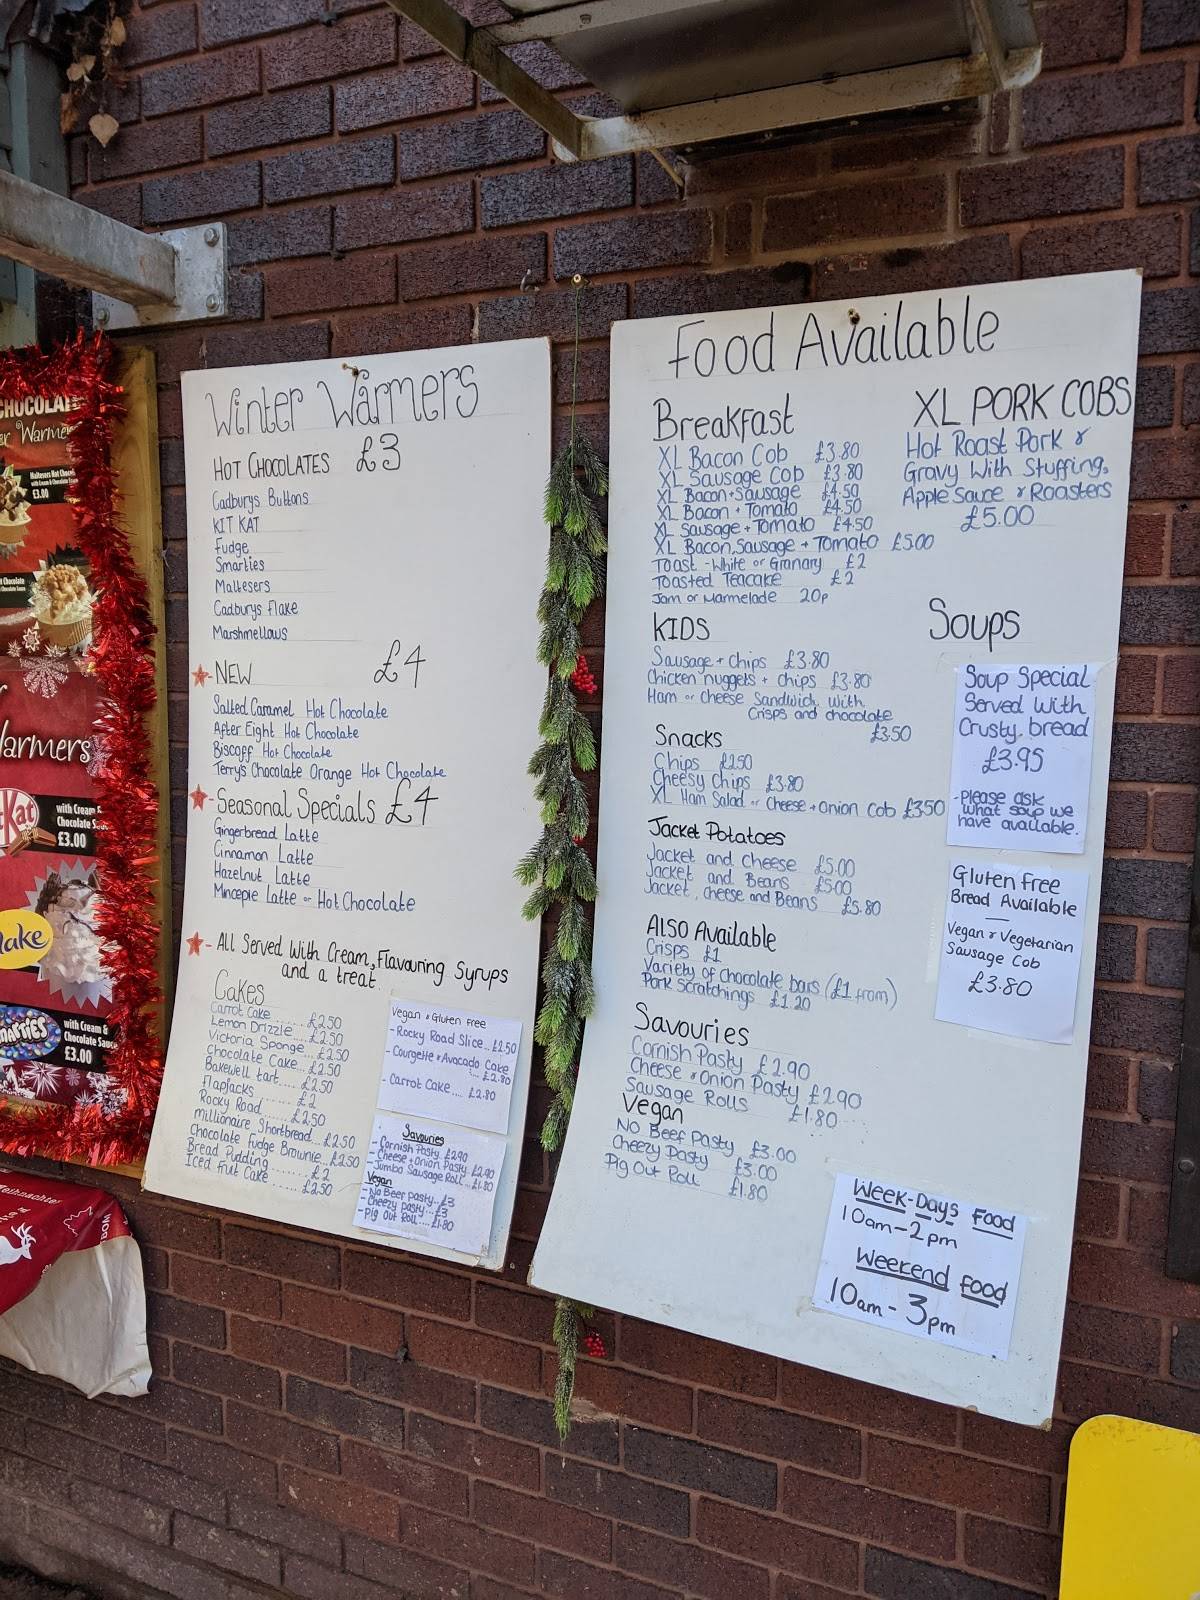 CHOCOLA
er Warme
Maltesers Hot Choc
£3.00
Hot Chocolate
Warmers
KitKat
with Cream &
Chocolate Sauc
£3.00
lake
SMARTIES
with Cream &
Chocolate Sauce
£3.00
Winter Warmers
HOT CHOCOLATES £3
Cadburys Buttons
KIT KAT
Fudge
Smarties
Maltesers
Cadburys Flake
Marshmellows
- NEW £4
Salted Caramel Hot Chocolate
After Eight Hot Chocolate
Biscoff Hot Chocolate
Terry's Chocolate Orange Hot Chocolate
- Seasonal Specials £4
Gingerbread Latte
Cinnamon Latte
Hazelnut Latte
Mincepie Latte or Hot Chocolate
- All Served With Cream, Flavouring Syrups
and a treat.
Cakes
Carrot Cake ........ £2.50
Lemon Drizzle ..... £2.50
Victoria Sponge ... £2.50
Chocolate Cake .... £2.50
Bakewell tart ..... £2.50
Flapjacks ....... £2
Rocky Road ..... £2.50
Millionaire Shortbread... £2.50
Chocolate Fudge Brownie.. £2.50
Bread Pudding ........ £2
Iced Fruit Cake ...... £2.50
Vegan & Gluten Free
- Rocky Road Slice... £2.50
- Courgette & Avocado Cake
.... £2.80
- Carrot Cake .... £2.80
Savouries
- Cornish Pasty £2.90
- Cheese + Onion Pasty £2.90
- Jumbo Sausage Roll... £1.80
Vegan
- No Beef pasty.. £3
- Cheezy pasty... £3
- Pig Out Roll.... £1.80
Food Available
Breakfast
XL Bacon Cob £3.80
XL Sausage Cob £3.80
XL Bacon + Sausage £4.50
XL Bacon + Tomato £4.50
XL Sausage + Tomato £4.50
XL Bacon, Sausage + Tomato £5.00
Toast - White or Granary £2
Toasted Teacake £2
Jam or Marmelade 20p
KIDS
Sausage + Chips £3.80
Chicken nuggets + chips £3.80
Ham or cheese Sandwich with
Crisps and chocolate
£3.50
Snacks
Chips £2.50
Cheesy Chips £3.80
XL Ham Salad or Cheese + Onion Cob £3.50
Jacket Potatoes
Jacket and Cheese £5.00
Jacket and Beans £5.00
Jacket, cheese and Beans £5.80
Also Available
Crisps £1
Variety of chocolate bars (£1 from)
Pork Scratchings £1.20
Savouries
Cornish Pasty £2.90
Cheese & Onion Pasty £2.90
Sausage Rolls £1.80
Vegan
No Beef Pasty £3.00
Cheezy Pasty £3.00
Pig Out Roll £1.80
XL PORK COBS
Hot Roast Pork &
Gravy With Stuffing,
Apple Sauce & Roasters
£5.00
Soups
Soup Special
Served with
Crusty bread
£3.95
- please ask
what soup we
have available.
Gluten Free
Bread Available
Vegan & Vegetarian
Sausage Cob
£3.80
Week-Days Food
10am-2pm
Weekend Food
10am-3pm